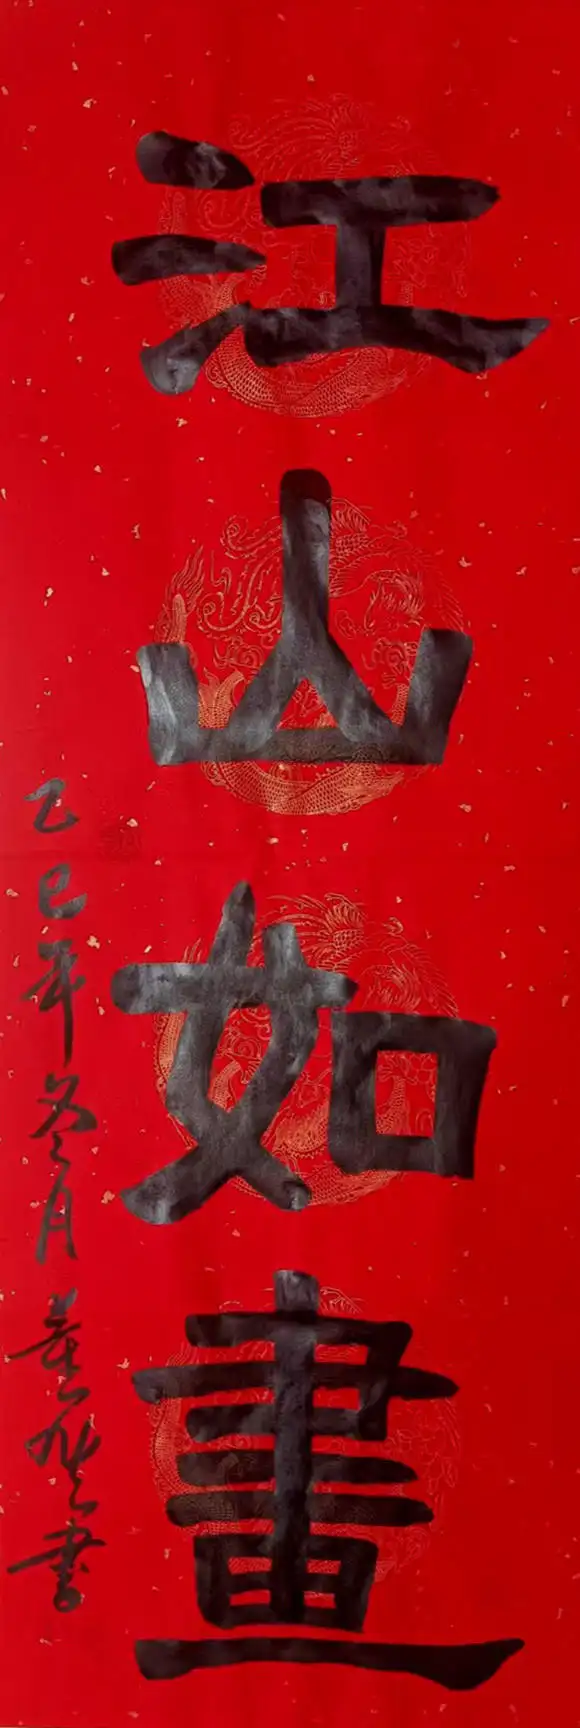 江山如畫
乙巳年冬月 董 书